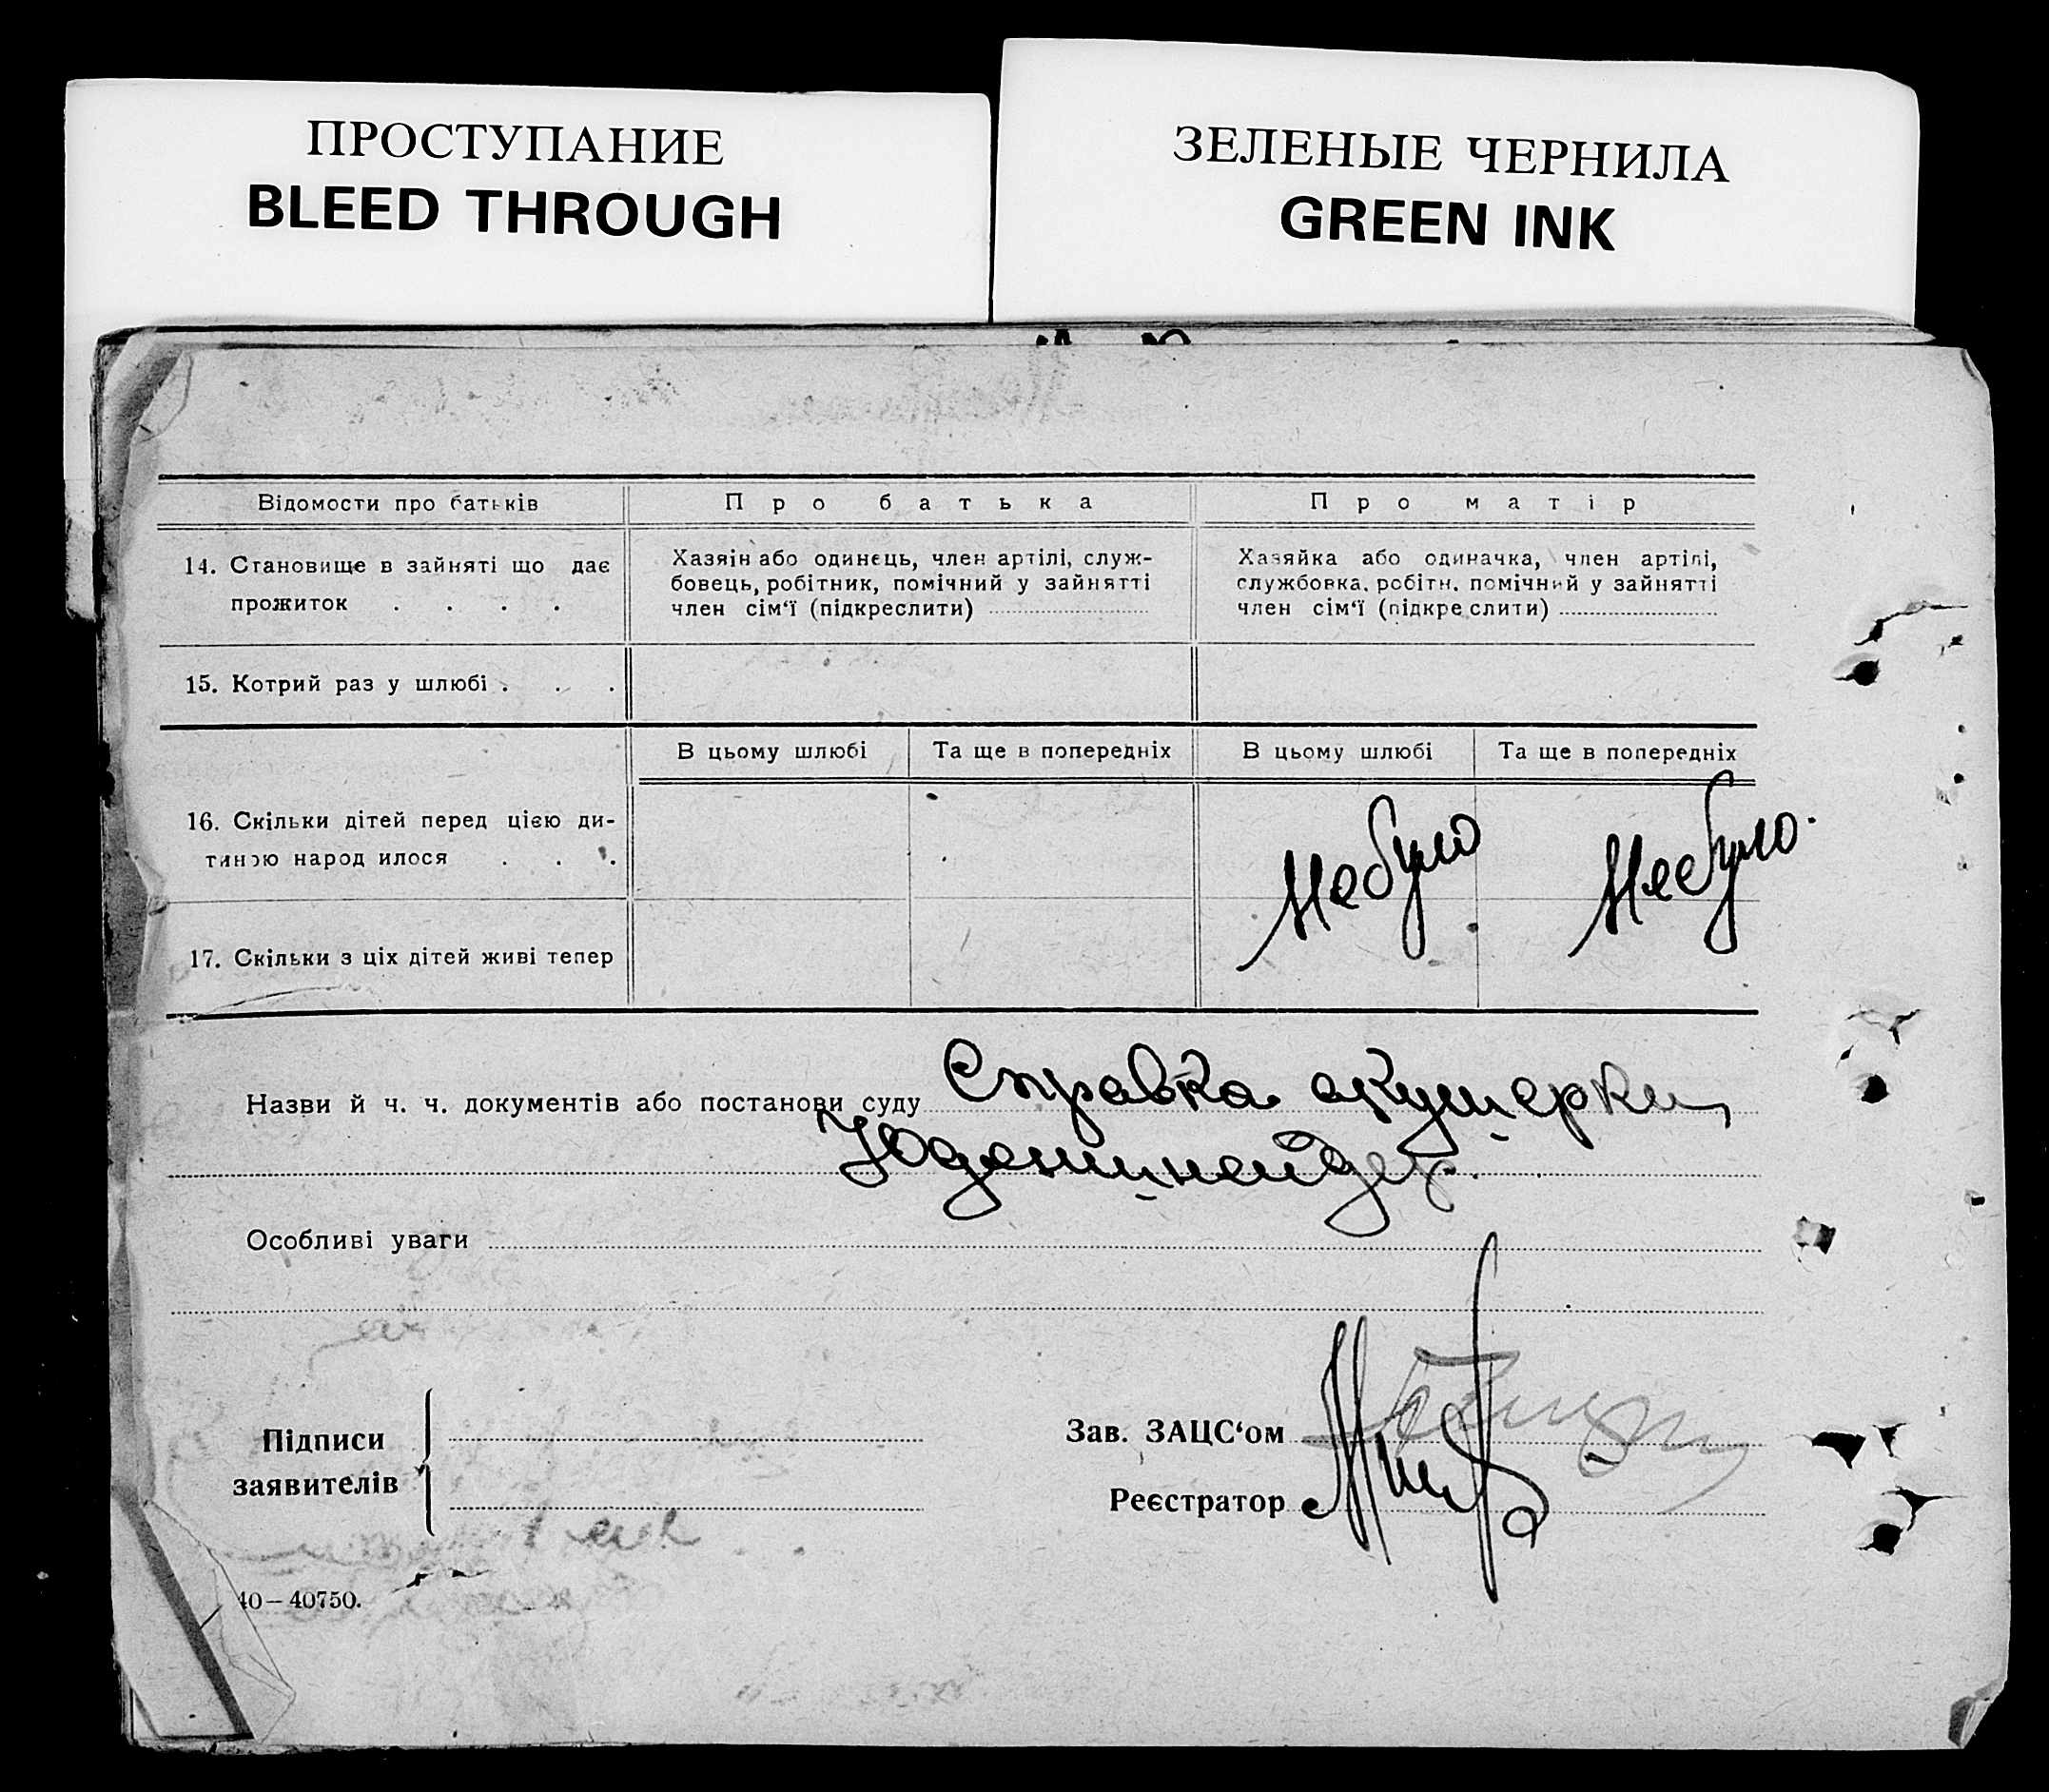 ПРОСТУПАНИЕ
BLEED THROUGH
ЗЕЛЕНЫЕ ЧЕРНИЛА
GREEN INK
Відомости про батьків
Про батька
Про матір
14. Становище в зайняті що дає
прожиток . . . .
Хазяїн або одинець, член артілі, служ-
бовець, робітник, помічний у зайнятті
член сім‘ї (підкреслити)
Хазяйка або одиначка, член артілі,
службовка, робітн. помічний у зайнятті
член сім‘ї (підкреслити)
15. Котрий раз у шлюбі . . .
В цьому шлюбі
Та ще в попередніх
В цьому шлюбі
Та ще в попередніх
16. Скільки дітей перед цією ди-
тиною народ илося . . .
Небуло
Небуло.
17. Скільки з ціх дітей живі тепер
Назви й ч. ч. документів або постанови суду Справка акушерки
Юденшнейдер.
Особливі уваги
Підписи
заявителів
Зав. ЗАЦС‘ом
Реєстратор
40—40750.